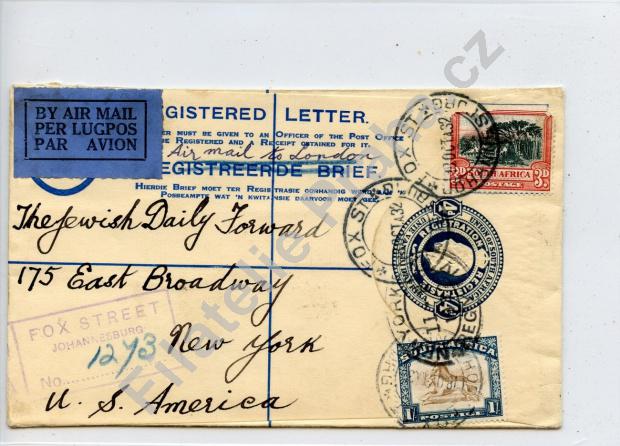 BY AIR MAIL
PER LUGPOS
PAR AVION
REGISTERED LETTER.
MUST BE GIVEN TO AN OFFICER OF THE POST OFFICE
REGISTERED AND RECEIPT OBTAINED FOR IT.
Air mail to London
GEREGISTREERDE BRIEF.
HIERDIE BRIEF MOET TER REGISTRASIE OORHANDIG WORD
POSBEAMPTE WAT 'N KWITANSIE DAARVOOR MOET GEE.
SOUTH AFRICA
3D 3D
POSTAGE
FOX ST
The Jewish Daily Forward
175 East Broadway
New York
U. S. America
FOX STREET
JOHANNESBURG
No. 1273
SOUTH AFRICA
1/- 1/-
POSTAGE
Filatelie Praha cz